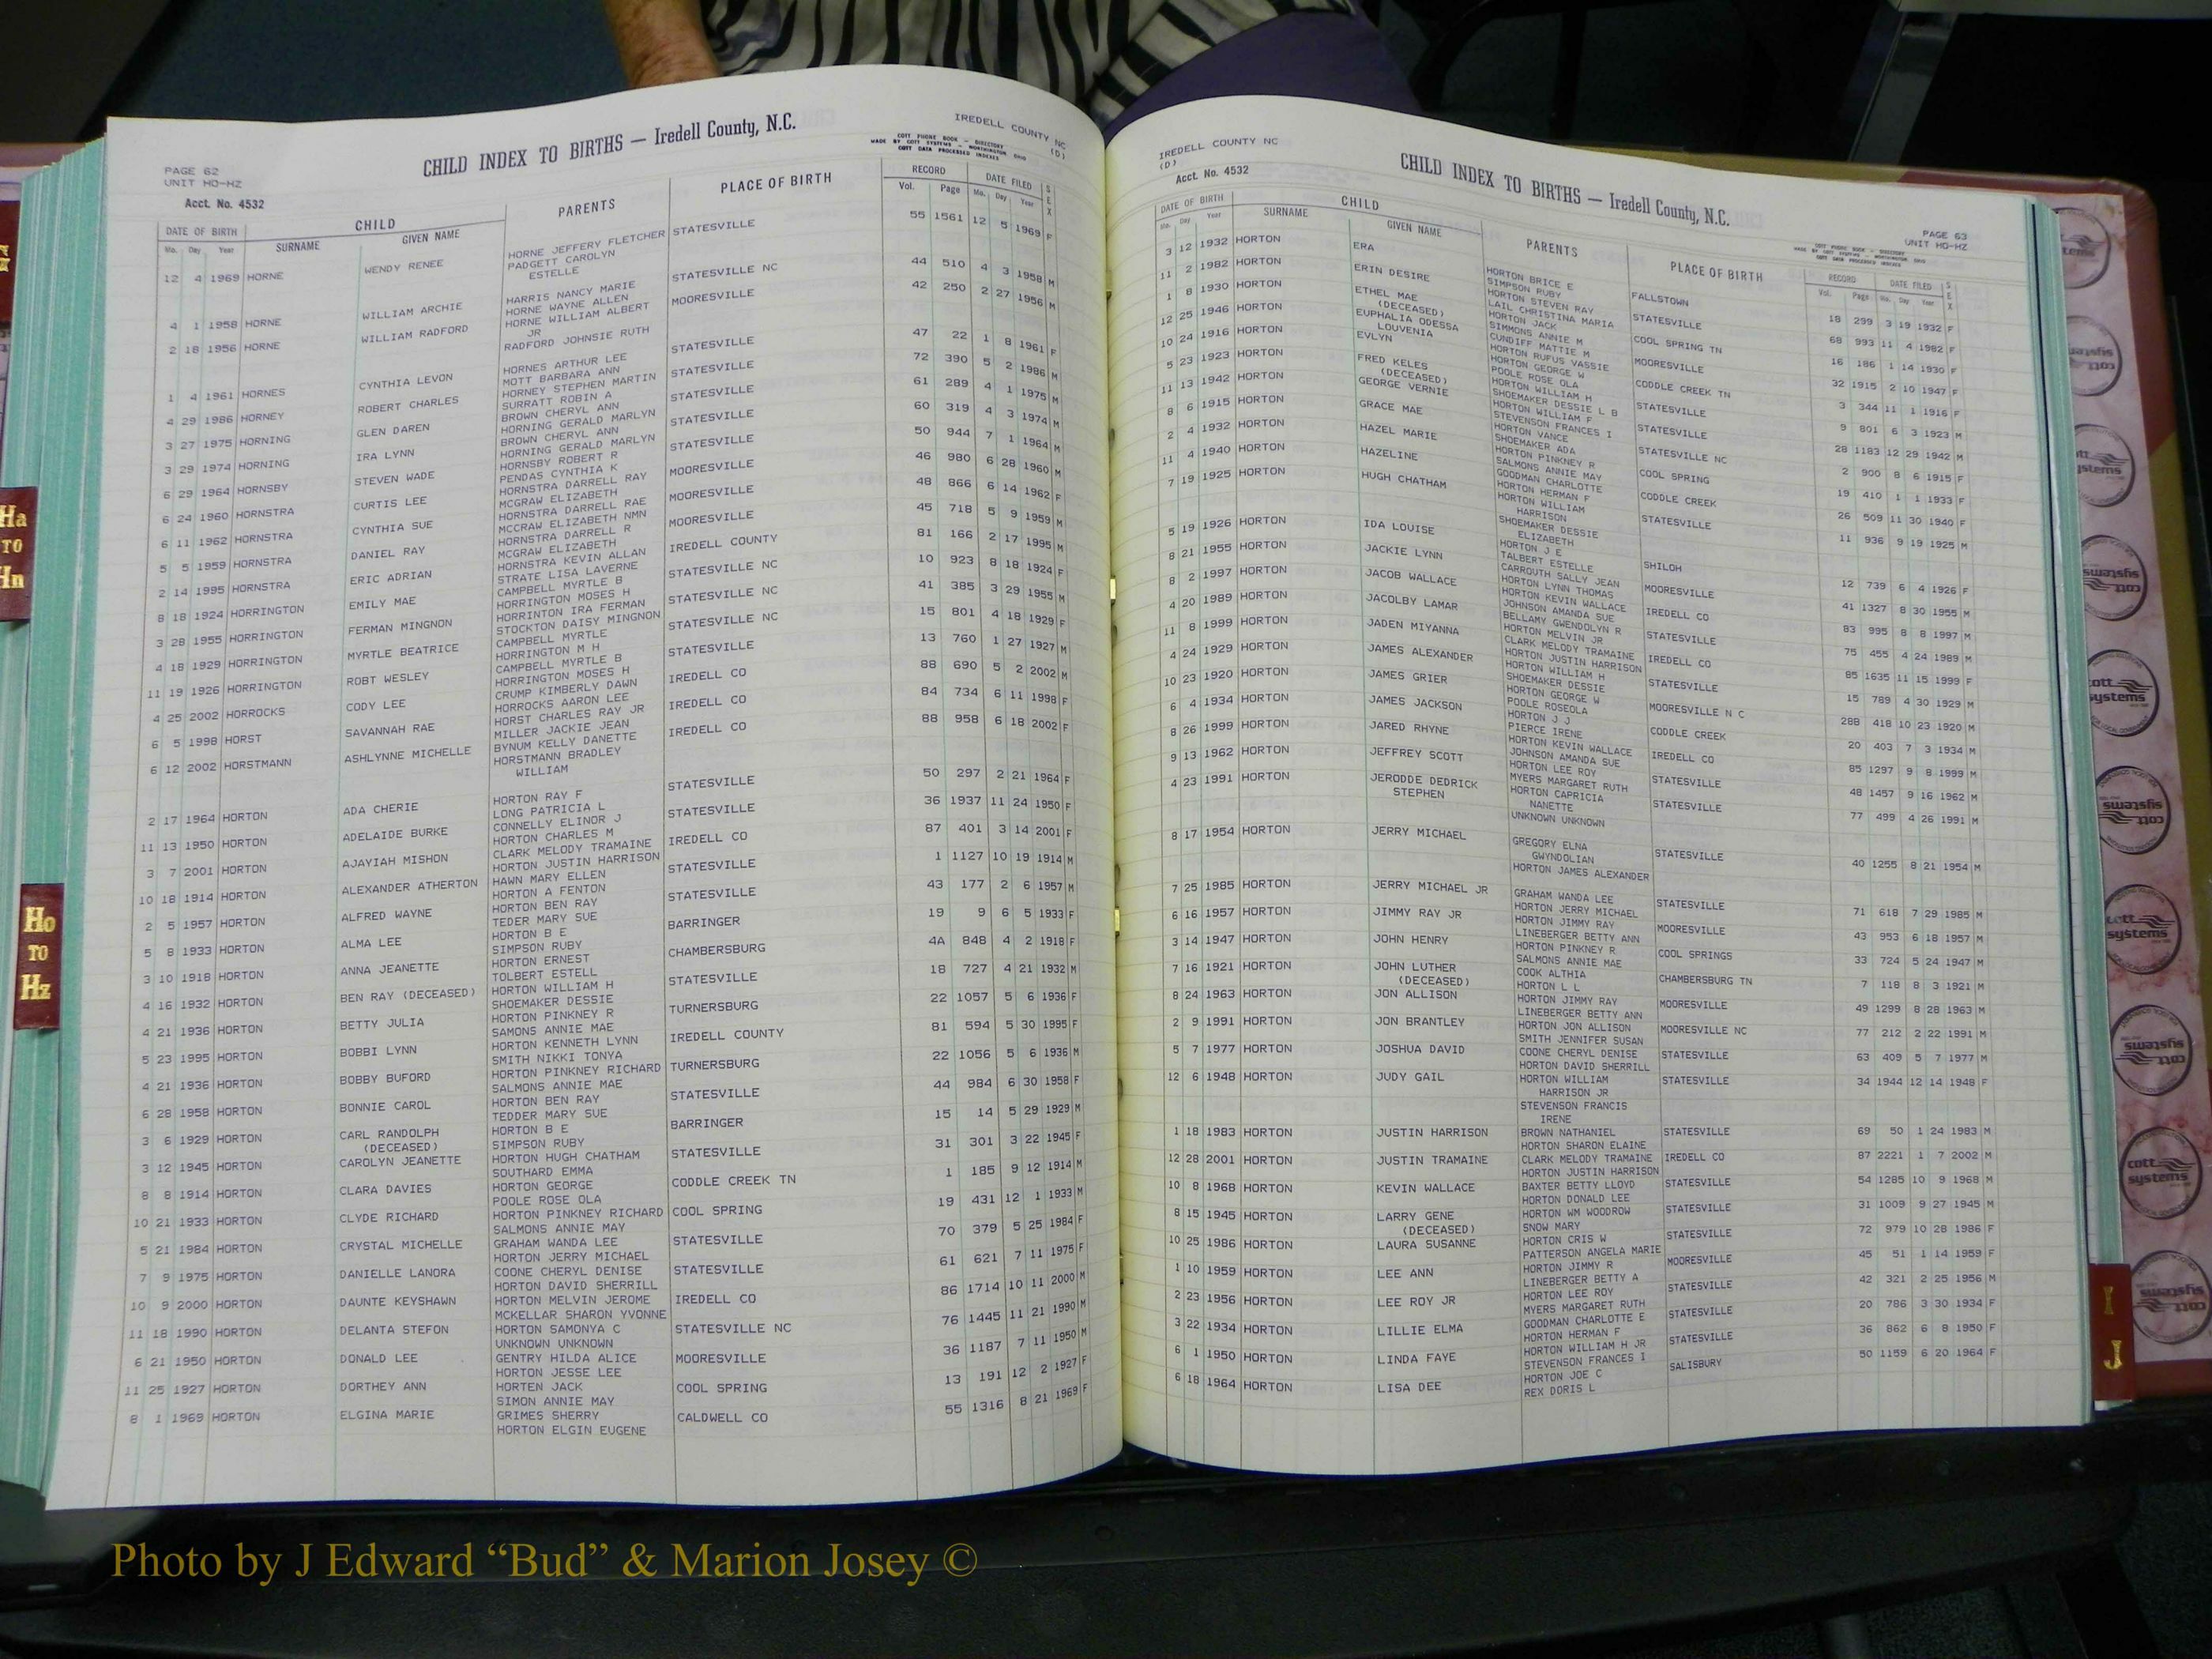 IREDELL COUNTY NC
(D)
CHILD INDEX TO BIRTHS — Iredell County, N.C.
COTT PHONE BOOK - DIRECTORY
MADE BY COTT SYSTEMS - WORTHINGTON OHIO
COTT DATA PROCESSED INDEXES
PAGE 62
UNIT HO-HZ
Acct. No. 4532
DATE OF BIRTH CHILD PARENTS PLACE OF BIRTH RECORD DATE FILED SEX
Mo. Day Year SURNAME GIVEN NAME Vol. Page Mo. Day Year
12 4 1969 HORNE WENDY RENEE HORNE JEFFERY FLETCHER STATESVILLE 55 1561 12 5 1969 F
PADGETT CAROLYN
ESTELLE
4 1 1958 HORNE WILLIAM ARCHIE HARRIS NANCY MARIE STATESVILLE NC 44 510 4 3 1958 M
HORNE WAYNE ALLEN
2 18 1956 HORNE WILLIAM RADFORD HORNE WILLIAM ALBERT MOORESVILLE 42 250 2 27 1956 M
JR
RADFORD JOHNSIE RUTH
1 4 1961 HORNES CYNTHIA LEVON HORNES ARTHUR LEE STATESVILLE 47 22 1 8 1961 F
MOTT BARBARA ANN
4 29 1986 HORNEY ROBERT CHARLES HORNEY STEPHEN MARTIN STATESVILLE 72 390 5 2 1986 M
SURRATT ROBIN A
3 27 1975 HORNING GLEN DAREN BROWN CHERYL ANN STATESVILLE 61 289 4 1 1975 M
HORNING GERALD MARLYN
3 29 1974 HORNING IRA LYNN BROWN CHERYL ANN STATESVILLE 60 319 4 3 1974 M
HORNING GERALD MARLYN
6 29 1964 HORNSBY STEVEN WADE HORNSBY ROBERT R STATESVILLE 50 944 7 1 1964 M
PENDAS CYNTHIA K
6 24 1960 HORNSTRA CURTIS LEE HORNSTRA DARRELL RAY MOORESVILLE 46 980 6 28 1960 M
MCGRAW ELIZABETH
6 11 1962 HORNSTRA CYNTHIA SUE HORNSTRA DARRELL RAE MOORESVILLE 48 866 6 14 1962 F
MCCRAW ELIZABETH NMN
5 5 1959 HORNSTRA DANIEL RAY HORNSTRA DARRELL R MOORESVILLE 45 718 5 9 1959 M
MCGRAW ELIZABETH
2 14 1995 HORNSTRA ERIC ADRIAN HORNSTRA KEVIN ALLAN IREDELL COUNTY 81 166 2 17 1995 M
STRATE LISA LAVERNE
8 18 1924 HORRINGTON EMILY MAE CAMPBELL MYRTLE B STATESVILLE NC 10 923 8 18 1924 F
HORRINGTON MOSES H
3 28 1955 HORRINGTON FERMAN MINGNON HORRINTON IRA FERMAN STATESVILLE NC 41 385 3 29 1955 M
STOCKTON DAISY MINGNON
4 18 1929 HORRINGTON MYRTLE BEATRICE CAMPBELL MYRTLE STATESVILLE NC 15 801 4 18 1929 F
HORRINGTON M H
11 19 1926 HORRINGTON ROBT WESLEY CAMPBELL MYRTLE B STATESVILLE 13 760 1 27 1927 M
HORRINGTON MOSES H
4 25 2002 HORROCKS CODY LEE CRUMP KIMBERLY DAWN IREDELL CO 88 690 5 2 2002 M
HORROCKS AARON LEE
6 5 1998 HORST SAVANNAH RAE HORST CHARLES RAY JR IREDELL CO 84 734 6 11 1998 F
MILLER JACKIE JEAN
6 12 2002 HORSTMANN ASHLYNNE MICHELLE BYNUM KELLY DANETTE IREDELL CO 88 958 6 18 2002 F
HORSTMANN BRADLEY
WILLIAM
2 17 1964 HORTON ADA CHERIE HORTON RAY F STATESVILLE 50 297 2 21 1964 F
LONG PATRICIA L
11 13 1950 HORTON ADELAIDE BURKE CONNELLY ELINOR J STATESVILLE 36 1937 11 24 1950 F
HORTON CHARLES M
3 7 2001 HORTON AJAYIAH MISHON CLARK MELODY TRAMAINE IREDELL CO 87 401 3 14 2001 F
HORTON JUSTIN HARRISON
10 18 1914 HORTON ALEXANDER ATHERTON HAWN MARY ELLEN STATESVILLE 1 1127 10 19 1914 M
HORTON A FENTON
2 5 1957 HORTON ALFRED WAYNE HORTON BEN RAY STATESVILLE 43 177 2 6 1957 M
TEDER MARY SUE
5 8 1933 HORTON ALMA LEE HORTON B E BARRINGER 19 9 6 5 1933 F
SIMPSON RUBY
3 10 1918 HORTON ANNA JEANETTE HORTON ERNEST CHAMBERSBURG 4A 848 4 2 1918 F
TOLBERT ESTELL
4 16 1932 HORTON BEN RAY (DECEASED) HORTON WILLIAM H STATESVILLE 18 727 4 21 1932 M
SHOEMAKER DESSIE
4 21 1936 HORTON BETTY JULIA HORTON PINKNEY R TURNERSBURG 22 1057 5 6 1936 F
SAMONS ANNIE MAE
5 23 1995 HORTON BOBBI LYNN HORTON KENNETH LYNN IREDELL COUNTY 81 594 5 30 1995 F
SMITH NIKKI TONYA
4 21 1936 HORTON BOBBY BUFORD HORTON PINKNEY RICHARD TURNERSBURG 22 1056 5 6 1936 M
SALMONS ANNIE MAE
6 28 1958 HORTON BONNIE CAROL HORTON BEN RAY STATESVILLE 44 984 6 30 1958 F
TEDDER MARY SUE
3 6 1929 HORTON CARL RANDOLPH HORTON B E BARRINGER 15 14 5 29 1929 M
(DECEASED) SIMPSON RUBY
3 12 1945 HORTON CAROLYN JEANETTE HORTON HUGH CHATHAM STATESVILLE 31 301 3 22 1945 F
SOUTHARD EMMA
8 8 1914 HORTON CLARA DAVIES HORTON GEORGE CODDLE CREEK TN 1 185 9 12 1914 M
POOLE ROSE OLA
10 21 1933 HORTON CLYDE RICHARD HORTON PINKNEY RICHARD COOL SPRING 19 431 12 1 1933 M
SALMONS ANNIE MAY
5 21 1984 HORTON CRYSTAL MICHELLE GRAHAM WANDA LEE STATESVILLE 70 379 5 25 1984 F
HORTON JERRY MICHAEL
7 9 1975 HORTON DANIELLE LANORA COONE CHERYL DENISE STATESVILLE 61 621 7 11 1975 F
HORTON DAVID SHERRILL
10 9 2000 HORTON DAUNTE KEYSHAWN HORTON MELVIN JEROME IREDELL CO 86 1714 10 11 2000 M
MCKELLAR SHARON YVONNE
11 18 1990 HORTON DELANTA STEFON HORTON SAMONYA C STATESVILLE NC 76 1445 11 21 1990 M
UNKNOWN UNKNOWN
6 21 1950 HORTON DONALD LEE GENTRY HILDA ALICE MOORESVILLE 36 1187 7 11 1950 M
HORTON JESSE LEE
11 25 1927 HORTON DORTHEY ANN HORTEN JACK COOL SPRING 13 191 12 2 1927 F
SIMON ANNIE MAY
8 1 1969 HORTON ELGINA MARIE GRIMES SHERRY CALDWELL CO 55 1316 8 21 1969 F
HORTON ELGIN EUGENE
IREDELL COUNTY NC
(D)
Acct. No. 4532
CHILD INDEX TO BIRTHS — Iredell County, N.C.
COTT PHONE BOOK - DIRECTORY
MADE BY COTT SYSTEMS - WORTHINGTON OHIO
COTT DATA PROCESSED INDEXES
PAGE 63
UNIT HO-HZ
DATE OF BIRTH CHILD PARENTS PLACE OF BIRTH RECORD DATE FILED SEX
Mo. Day Year SURNAME GIVEN NAME Vol. Page Mo. Day Year
3 12 1932 HORTON ERA HORTON BRICE E FALLSTOWN 18 299 3 19 1932 F
SIMPSON RUBY
11 2 1982 HORTON ERIN DESIRE HORTON STEVEN RAY STATESVILLE 68 993 11 4 1982 F
LAIL CHRISTINA MARIA
1 8 1930 HORTON ETHEL MAE HORTON JACK COOL SPRING TN 16 186 1 14 1930 F
(DECEASED) SIMMONS ANNIE M
12 25 1946 HORTON EUPHALIA ODESSA CUNDIFF MATTIE M MOORESVILLE 32 1915 2 10 1947 F
LOUVENIA HORTON RUFUS VASSIE
10 24 1916 HORTON EVLYN HORTON GEORGE W CODDLE CREEK TN 3 344 11 1 1916 F
POOLE ROSE OLA
5 23 1923 HORTON FRED KELES HORTON WILLIAM H STATESVILLE 9 801 6 3 1923 M
(DECEASED) SHOEMAKER DESSIE L B
11 13 1942 HORTON GEORGE VERNIE HORTON WILLIAM F STATESVILLE 28 1183 12 29 1942 M
STEVENSON FRANCES I
8 6 1915 HORTON GRACE MAE HORTON VANCE STATESVILLE NC 2 900 8 6 1915 F
SHOEMAKER ADA
2 4 1932 HORTON HAZEL MARIE HORTON PINKNEY R COOL SPRING 19 410 1 1 1933 F
SALMONS ANNIE MAY
11 4 1940 HORTON HAZELINE GOODMAN CHARLOTTE CODDLE CREEK 26 509 11 30 1940 F
HORTON HERMAN F
7 19 1925 HORTON HUGH CHATHAM HORTON WILLIAM STATESVILLE 11 936 9 19 1925 M
HARRISON
SHOEMAKER DESSIE
ELIZABETH
5 19 1926 HORTON IDA LOUISE HORTON J E SHILOH 12 739 6 4 1926 F
TALBERT ESTELLE
8 21 1955 HORTON JACKIE LYNN CARROUTH SALLY JEAN MOORESVILLE 41 1327 8 30 1955 M
HORTON LYNN THOMAS
8 2 1997 HORTON JACOB WALLACE HORTON KEVIN WALLACE IREDELL CO 83 995 8 8 1997 M
JOHNSON AMANDA SUE
4 20 1989 HORTON JACOLBY LAMAR BELLAMY GWENDOLYN R STATESVILLE 75 455 4 24 1989 M
HORTON MELVIN JR
11 8 1999 HORTON JADEN MIYANNA CLARK MELODY TRAMAINE IREDELL CO 85 1635 11 15 1999 F
HORTON JUSTIN HARRISON
4 24 1929 HORTON JAMES ALEXANDER HORTON WILLIAM H STATESVILLE 15 789 4 30 1929 M
SHOEMAKER DESSIE
10 23 1920 HORTON JAMES GRIER HORTON GEORGE W MOORESVILLE N C 28B 418 10 23 1920 M
POOLE ROSEOLA
6 4 1934 HORTON JAMES JACKSON HORTON J J CODDLE CREEK 20 403 7 3 1934 M
PIERCE IRENE
8 26 1999 HORTON JARED RHYNE HORTON KEVIN WALLACE IREDELL CO 85 1297 9 8 1999 M
JOHNSON AMANDA SUE
9 13 1962 HORTON JEFFREY SCOTT HORTON LEE ROY STATESVILLE 48 1457 9 16 1962 M
MYERS MARGARET RUTH
4 23 1991 HORTON JERODDE DEDRICK HORTON CAPRICIA STATESVILLE 77 499 4 26 1991 M
STEPHEN NANETTE
UNKNOWN UNKNOWN
8 17 1954 HORTON JERRY MICHAEL GREGORY ELNA STATESVILLE 40 1255 8 21 1954 M
GWYNDOLIAN
HORTON JAMES ALEXANDER
7 25 1985 HORTON JERRY MICHAEL JR GRAHAM WANDA LEE STATESVILLE 71 618 7 29 1985 M
HORTON JERRY MICHAEL
6 16 1957 HORTON JIMMY RAY JR HORTON JIMMY RAY MOORESVILLE 43 953 6 18 1957 M
LINEBERGER BETTY ANN
3 14 1947 HORTON JOHN HENRY HORTON PINKNEY R COOL SPRINGS 33 724 5 24 1947 M
SALMONS ANNIE MAE
7 16 1921 HORTON JOHN LUTHER COOK ALTHIA CHAMBERSBURG TN 7 118 8 3 1921 M
(DECEASED) HORTON L L
8 24 1963 HORTON JON ALLISON HORTON JIMMY RAY MOORESVILLE 49 1299 8 28 1963 M
LINEBERGER BETTY ANN
2 9 1991 HORTON JON BRANTLEY HORTON JON ALLISON MOORESVILLE NC 77 212 2 22 1991 M
SMITH JENNIFER SUSAN
5 7 1977 HORTON JOSHUA DAVID COONE CHERYL DENISE STATESVILLE 63 409 5 7 1977 M
HORTON DAVID SHERRILL
12 6 1948 HORTON JUDY GAIL HORTON WILLIAM STATESVILLE 34 1944 12 14 1948 F
HARRISON JR
STEVENSON FRANCIS
IRENE
1 18 1983 HORTON JUSTIN HARRISON BROWN NATHANIEL STATESVILLE 69 50 1 24 1983 M
HORTON SHARON ELAINE
12 28 2001 HORTON JUSTIN TRAMAINE CLARK MELODY TRAMAINE IREDELL CO 87 2221 1 7 2002 M
HORTON JUSTIN HARRISON
10 8 1968 HORTON KEVIN WALLACE BAXTER BETTY LLOYD STATESVILLE 54 1285 10 9 1968 M
HORTON DONALD LEE
8 15 1945 HORTON LARRY GENE HORTON WM WOODROW STATESVILLE 31 1009 9 27 1945 M
(DECEASED) SNOW MARY
10 25 1986 HORTON LAURA SUSANNE HORTON CRIS W STATESVILLE 72 979 10 28 1986 F
PATTERSON ANGELA MARIE
1 10 1959 HORTON LEE ANN HORTON JIMMY R MOORESVILLE 45 51 1 14 1959 F
LINEBERGER BETTY A
2 23 1956 HORTON LEE ROY JR HORTON LEE ROY STATESVILLE 42 321 2 25 1956 M
MYERS MARGARET RUTH
3 22 1934 HORTON LILLIE ELMA GOODMAN CHARLOTTE E STATESVILLE 20 786 3 30 1934 F
HORTON HERMAN F
6 1 1950 HORTON LINDA FAYE HORTON WILLIAM H JR STATESVILLE 36 862 6 8 1950 F
STEVENSON FRANCES I
6 18 1964 HORTON LISA DEE HORTON JOE C SALISBURY 50 1159 6 20 1964 F
REX DORIS L
Ha
TO
Hn
Ho
TO
Hz
I
J
cott
systems
Photo by J Edward “Bud” & Marion Josey ©